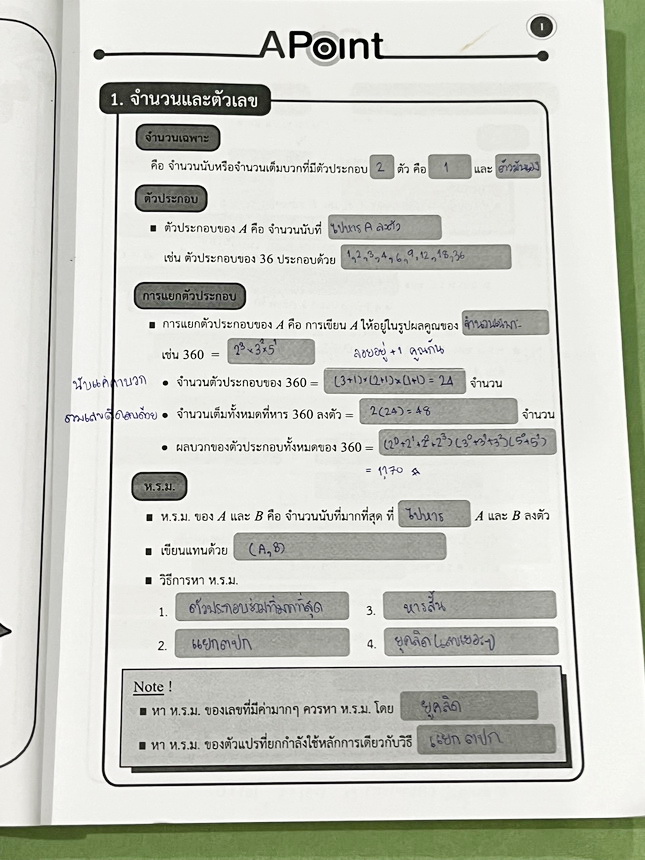 1
APoint
1. จำนวนและตัวเลข
จำนวนเฉพาะ
คือ จำนวนนับหรือจำนวนเต็มบวกที่มีตัวประกอบ 2 ตัว คือ 1 และ ตัวมันเอง
ตัวประกอบ
ตัวประกอบของ A คือ จำนวนนับที่ ไปหาร A ลงตัว
เช่น ตัวประกอบของ 36 ประกอบด้วย 1,2,3,4,6,9,12,18,36
การแยกตัวประกอบ
การแยกตัวประกอบของ A คือ การเขียน A ให้อยู่ในรูปผลคูณของ จำนวนเฉพาะ
เช่น 360 = 2³×3²×5¹
+1 คูณกัน
จำนวนตัวประกอบของ 360 = (3+1)×(2+1)×(1+1) = 24 จำนวน
นับแค่ค่าบวก
จำนวนเต็มทั้งหมดที่หาร 360 ลงตัว = 2(24) = 48 จำนวน
ผลบวกของตัวประกอบทั้งหมดของ 360 = (2⁰+2¹+2²+2³)(3⁰+3¹+3²)(5⁰+5¹)
= 1,170
ห.ร.ม.
ห.ร.ม. ของ A และ B คือ จำนวนนับที่มากที่สุด ที่ ไปหาร A และ B ลงตัว
เขียนแทนด้วย (A,B)
วิธีการหา ห.ร.ม.
1. ตัวประกอบร่วมที่มากที่สุด
3. หารสั้น
2. แยกตปก
4. ยุคลิด
Note !
หา ห.ร.ม. ของเลขที่มีค่ามากๆ ควรหา ห.ร.ม. โดย ยุคลิด
หา ห.ร.ม. ของตัวแปรที่ยกกำลังใช้หลักการเดียวกับวิธี แยก ตปก.